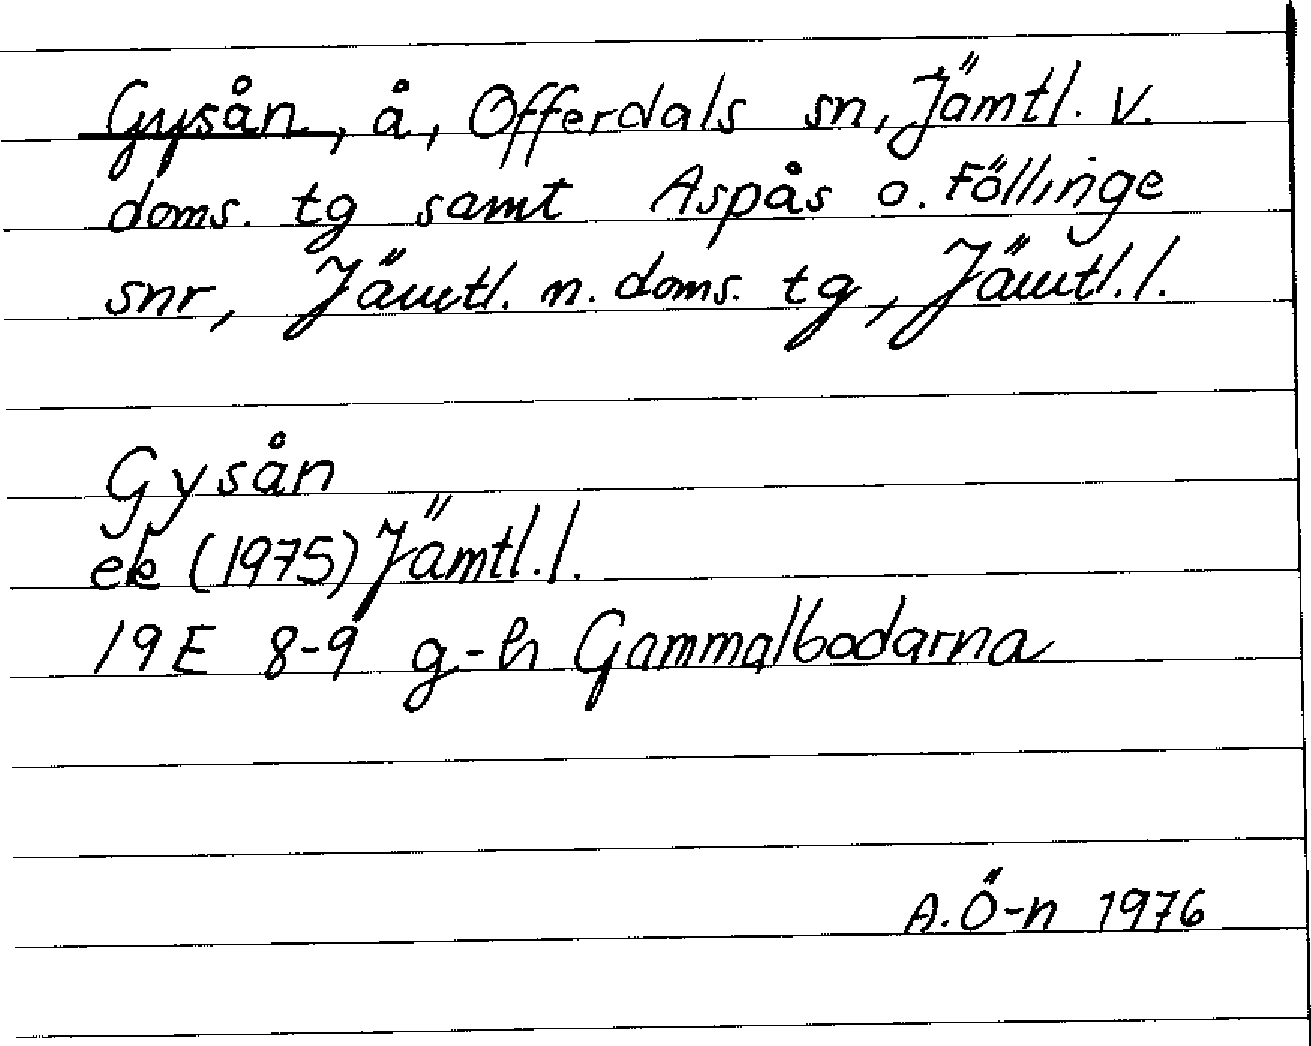 Gysån, å, Offerdals sn, Jämtl. v.
doms. tg samt Aspås o. Föllinge
snr, Jämtl. n. doms. tg, Jämtl. l.
Gysån
ek (1975) Jämtl. l.
19E 8-9 g-h Gammalbodarna
A. Ö-n 1976